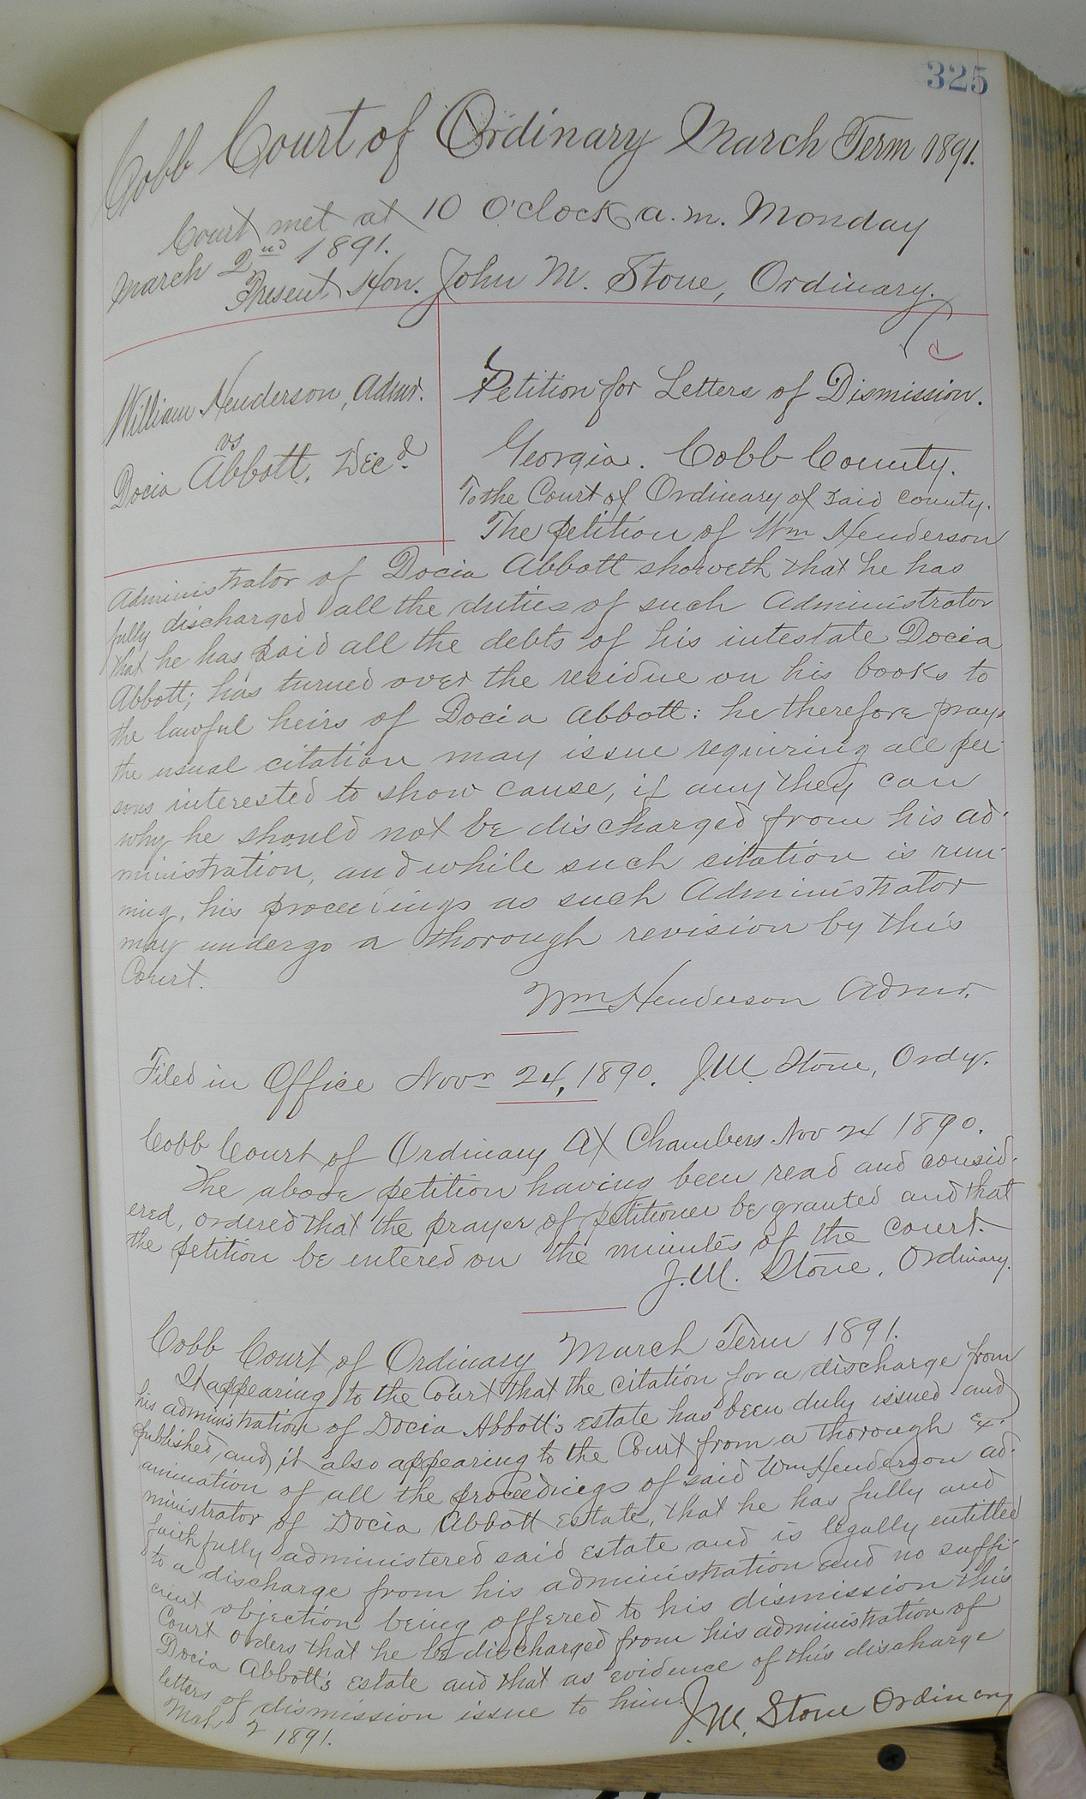 325
Cobb Court of Ordinary March Term 1891.
Court met at 10 O'clock a.m. Monday
March 2nd 1891.
Present Hon. John M. Stone, Ordinary.
William Henderson, Admr.
vs
Docia Abbott, Decd.
Petition for Letters of Dismission.
Georgia. Cobb County.
To the Court of Ordinary of said county.
The petition of Wm Henderson
Administrator of Docia Abbott showeth that he has
fully discharged all the duties of such Administrator
that he has paid all the debts of his intestate Docia
Abbott; has turned over the residue on his books to
the lawful heirs of Docia Abbott: he therefore prays
the usual citation may issue requiring all per-
sons interested to show cause, if any they can
why he should not be discharged from his ad-
ministration, and while such citation is run-
ning, his proceedings as such Administrator
may undergo a thorough revision by this
Court.
Wm Henderson Admr.
Filed in Office Novr 24, 1890. J.M. Stone, Ordy.
Cobb Court of Ordinary At Chambers Nov 24 1890.
The above petition having been read and consid-
ered, ordered that the prayer of petitioner be granted and that
the petition be entered on the minutes of the court.
J.M. Stone, Ordinary.
Cobb Court of Ordinary March Term 1891.
It appearing to the Court that the citation for a discharge from
his administration of Docia Abbott's Estate has been duly issued and
published, and it also appearing to the Court from a thorough ex-
amination of all the proceedings of said Wm Henderson ad-
ministrator of Docia Abbott Estate, that he has fully and
faithfully administered said estate and is legally entitled
to a discharge from his administration and no suffi-
cient objection being offered to his dismission this
Court orders that he be discharged from his administration of
Docia Abbott's Estate and that as evidence of this discharge
letters of dismission issue to him.
Mch 2 1891. J.M. Stone Ordinary